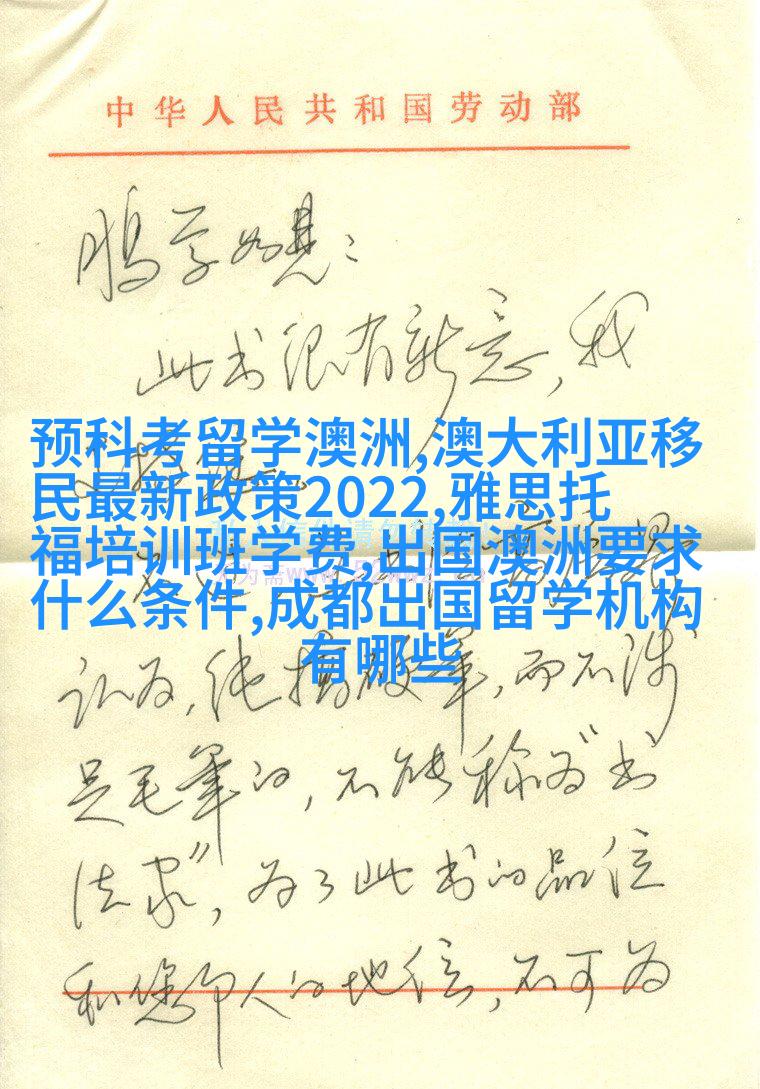 中华人民共和国劳动部
鹏学如晤：
此书很有新意，我
预科考留学澳洲,澳大利亚移
民最新政策2022,雅思托
福培训班学费,出国澳洲要求
什么条件,成都出国留学机构
有哪些
认为，纯搞硬笔，而不涉
足毛笔的，不能称为"书
法家"，为了此书的品位
和您个人的地位，不可为